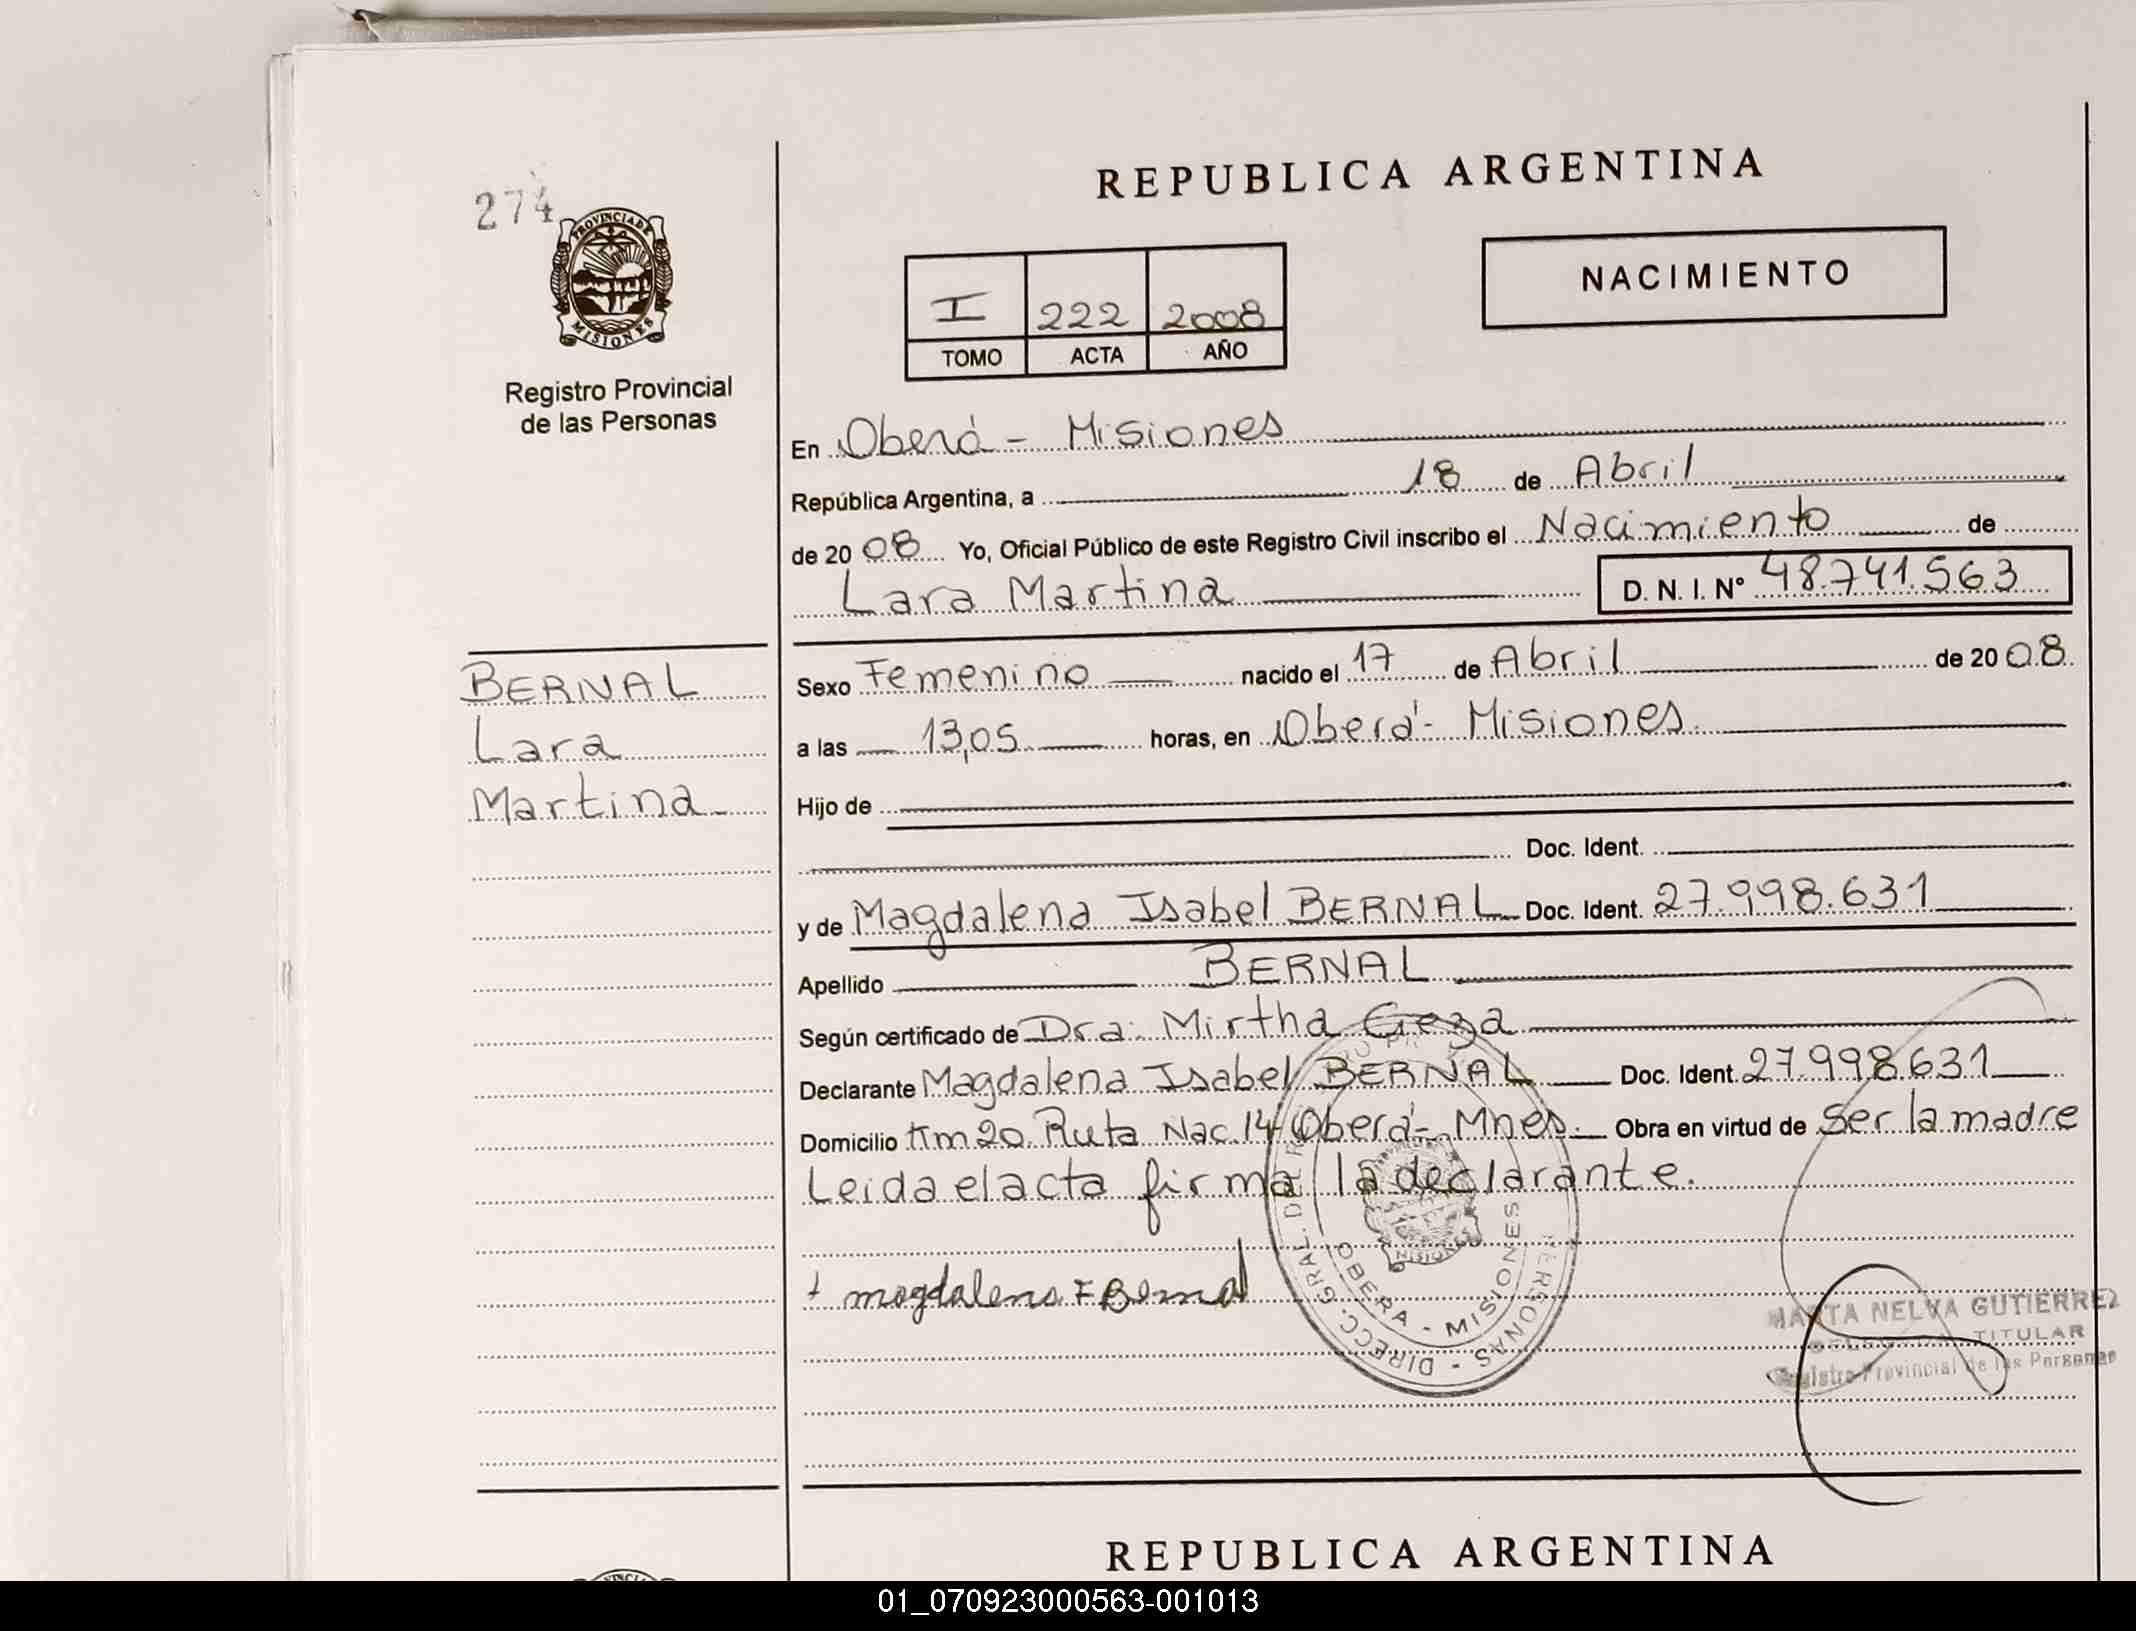 274
PROVINCIA DE
MISIONES
Registro Provincial
de las Personas
BERNAL
Lara
Martina
REPUBLICA ARGENTINA
NACIMIENTO
I 222 2008
TOMO ACTA AÑO
En Oberá - Misiones
República Argentina, a 18 de Abril
de 2008 Yo, Oficial Público de este Registro Civil inscribo el Nacimiento de
Lara Martina D. N. I. Nº 48.741.563
Sexo Femenino nacido el 17 de Abril de 2008
a las 13,05 horas, en Oberá - Misiones
Hijo de
Doc. Ident.
y de Magdalena Isabel BERNAL Doc. Ident. 27.998.631
Apellido BERNAL
Según certificado de Dra. Mirtha
Declarante Magdalena Isabel BERNAL Doc. Ident. 27.998.631
Domicilio Km 20 Ruta Nac. 14 Oberá - Mnes. Obra en virtud de Ser la madre
Leida el acta firma la declarante.
magdalena I Bernal
DIRECC. GRAL. DE PERSONAS
OBERA - MISIONES
MISIONES
MARTA NELVA GUTIERREZ
TITULAR
Registro Provincial de las Personas
REPUBLICA ARGENTINA
01_070923000563-001013